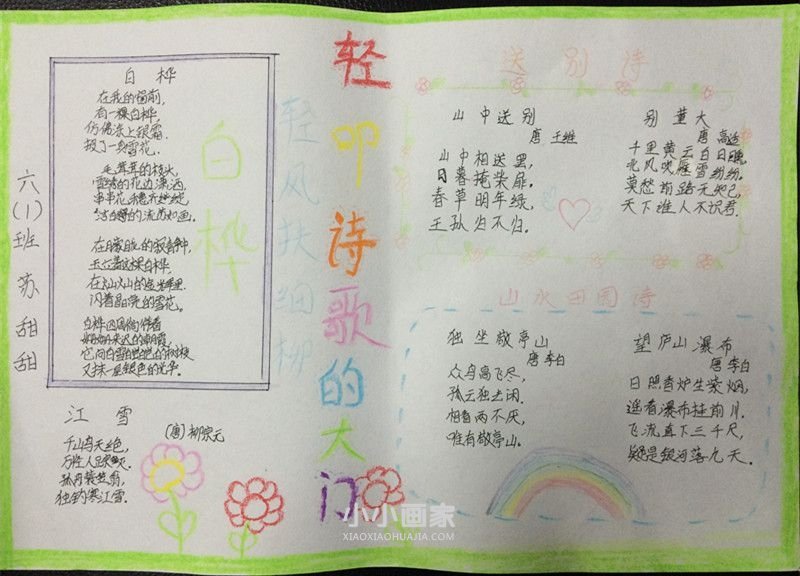 六(1)班 苏甜甜
白桦
在我的窗前,
有一棵白桦,
仿佛涂上银霜,
披了一身雪花.
毛茸茸的枝头,
雪绣的花边潇洒,
串串花穗齐绽,
洁白的流苏如画.
在朦胧的寂静中,
玉立着这棵白桦,
在灿灿的金晖里
闪着晶亮的雪花.
白桦四周徜徉着
姗姗来迟的朝霞,
它向白雪皑皑的树枝
又抹一层银色的光华.
白桦
江雪
(唐)柳宗元
千山鸟飞绝,
万径人踪灭.
孤舟蓑笠翁,
独钓寒江雪.
轻风扶细柳
轻叩诗歌的大门
送别诗
山中送别
唐 王维
山中相送罢,
日暮掩柴扉.
春草明年绿,
王孙归不归.
别董大
唐 高适
千里黄云白日曛,
北风吹雁雪纷纷.
莫愁前路无知己,
天下谁人不识君.
山水田园诗
独坐敬亭山
唐 李白
众鸟高飞尽,
孤云独去闲.
相看两不厌,
唯有敬亭山.
望庐山瀑布
唐 李白
日照香炉生紫烟,
遥看瀑布挂前川.
飞流直下三千尺,
疑是银河落九天.
小小画家
XIAOXIAOHUAJIA.COM